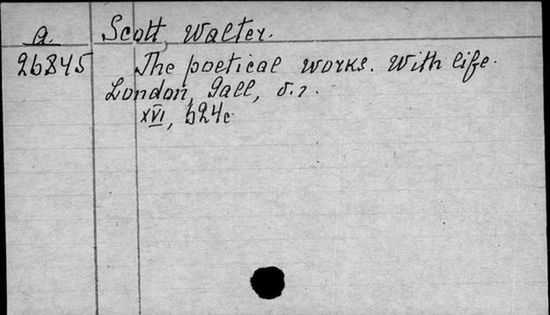 a Scott, Walter.
26845 The poetical works. With life.
London, Gall, б.г.
XVI, 624c